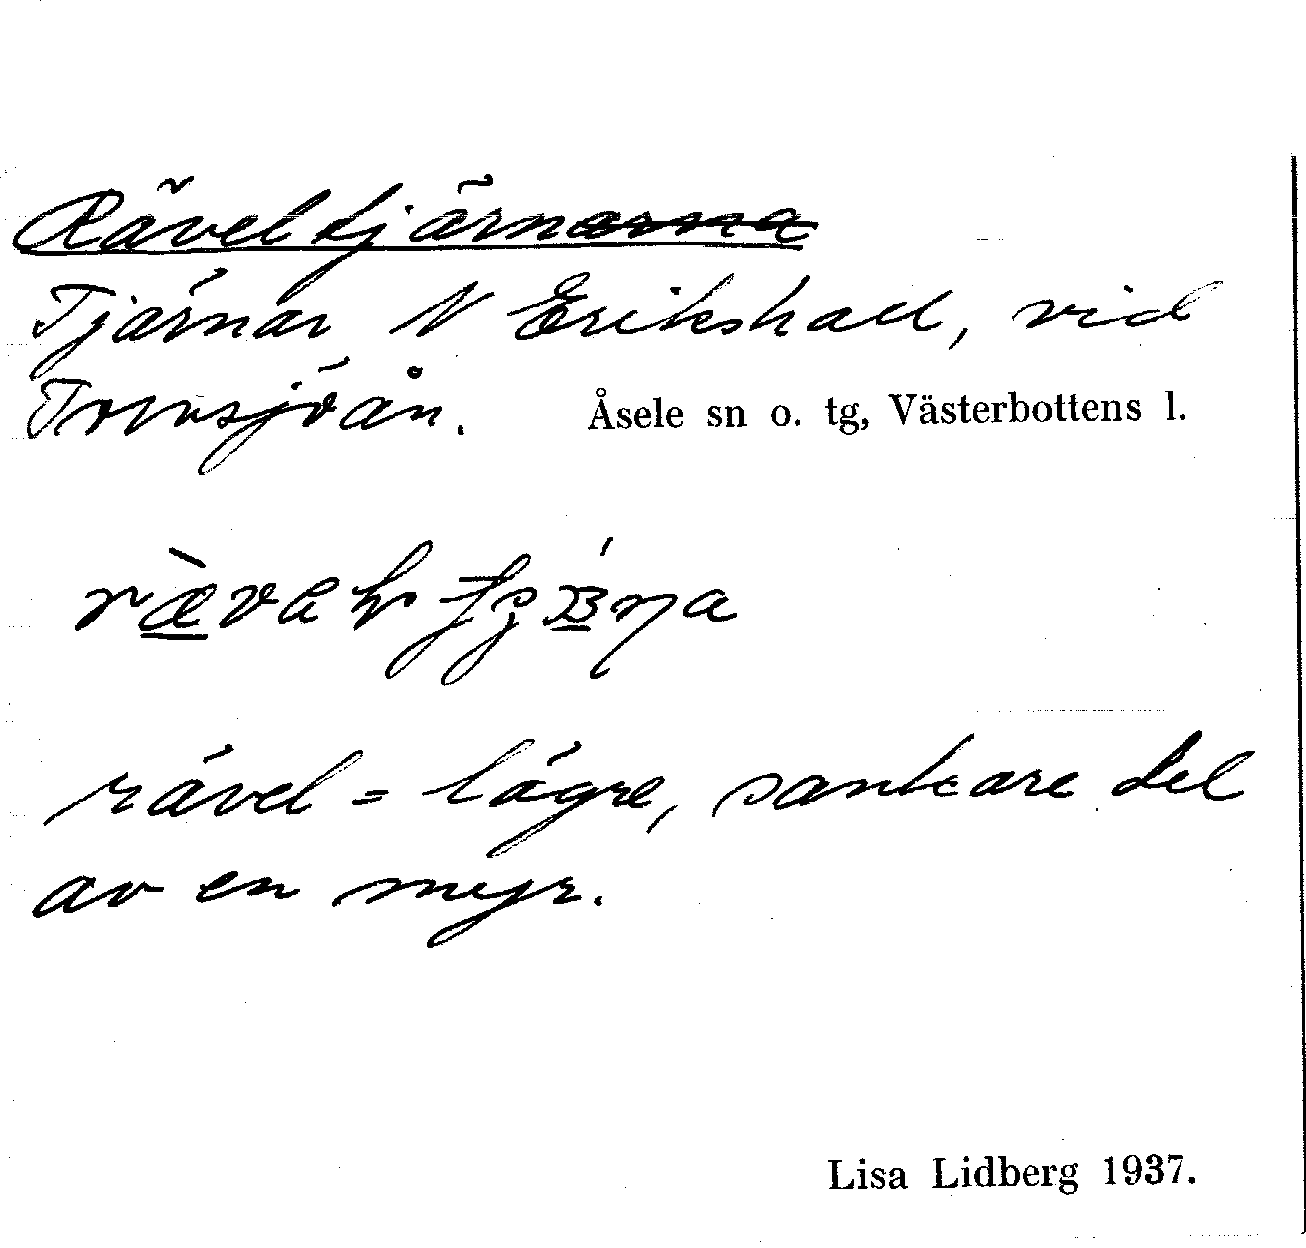 Räveltjärnarna
Tjärnar N Erikshall, vid
Åsele sn o. tg, Västerbottens l.
rävel = lägre, sankare del
av en myr.
Lisa Lidberg 1937.